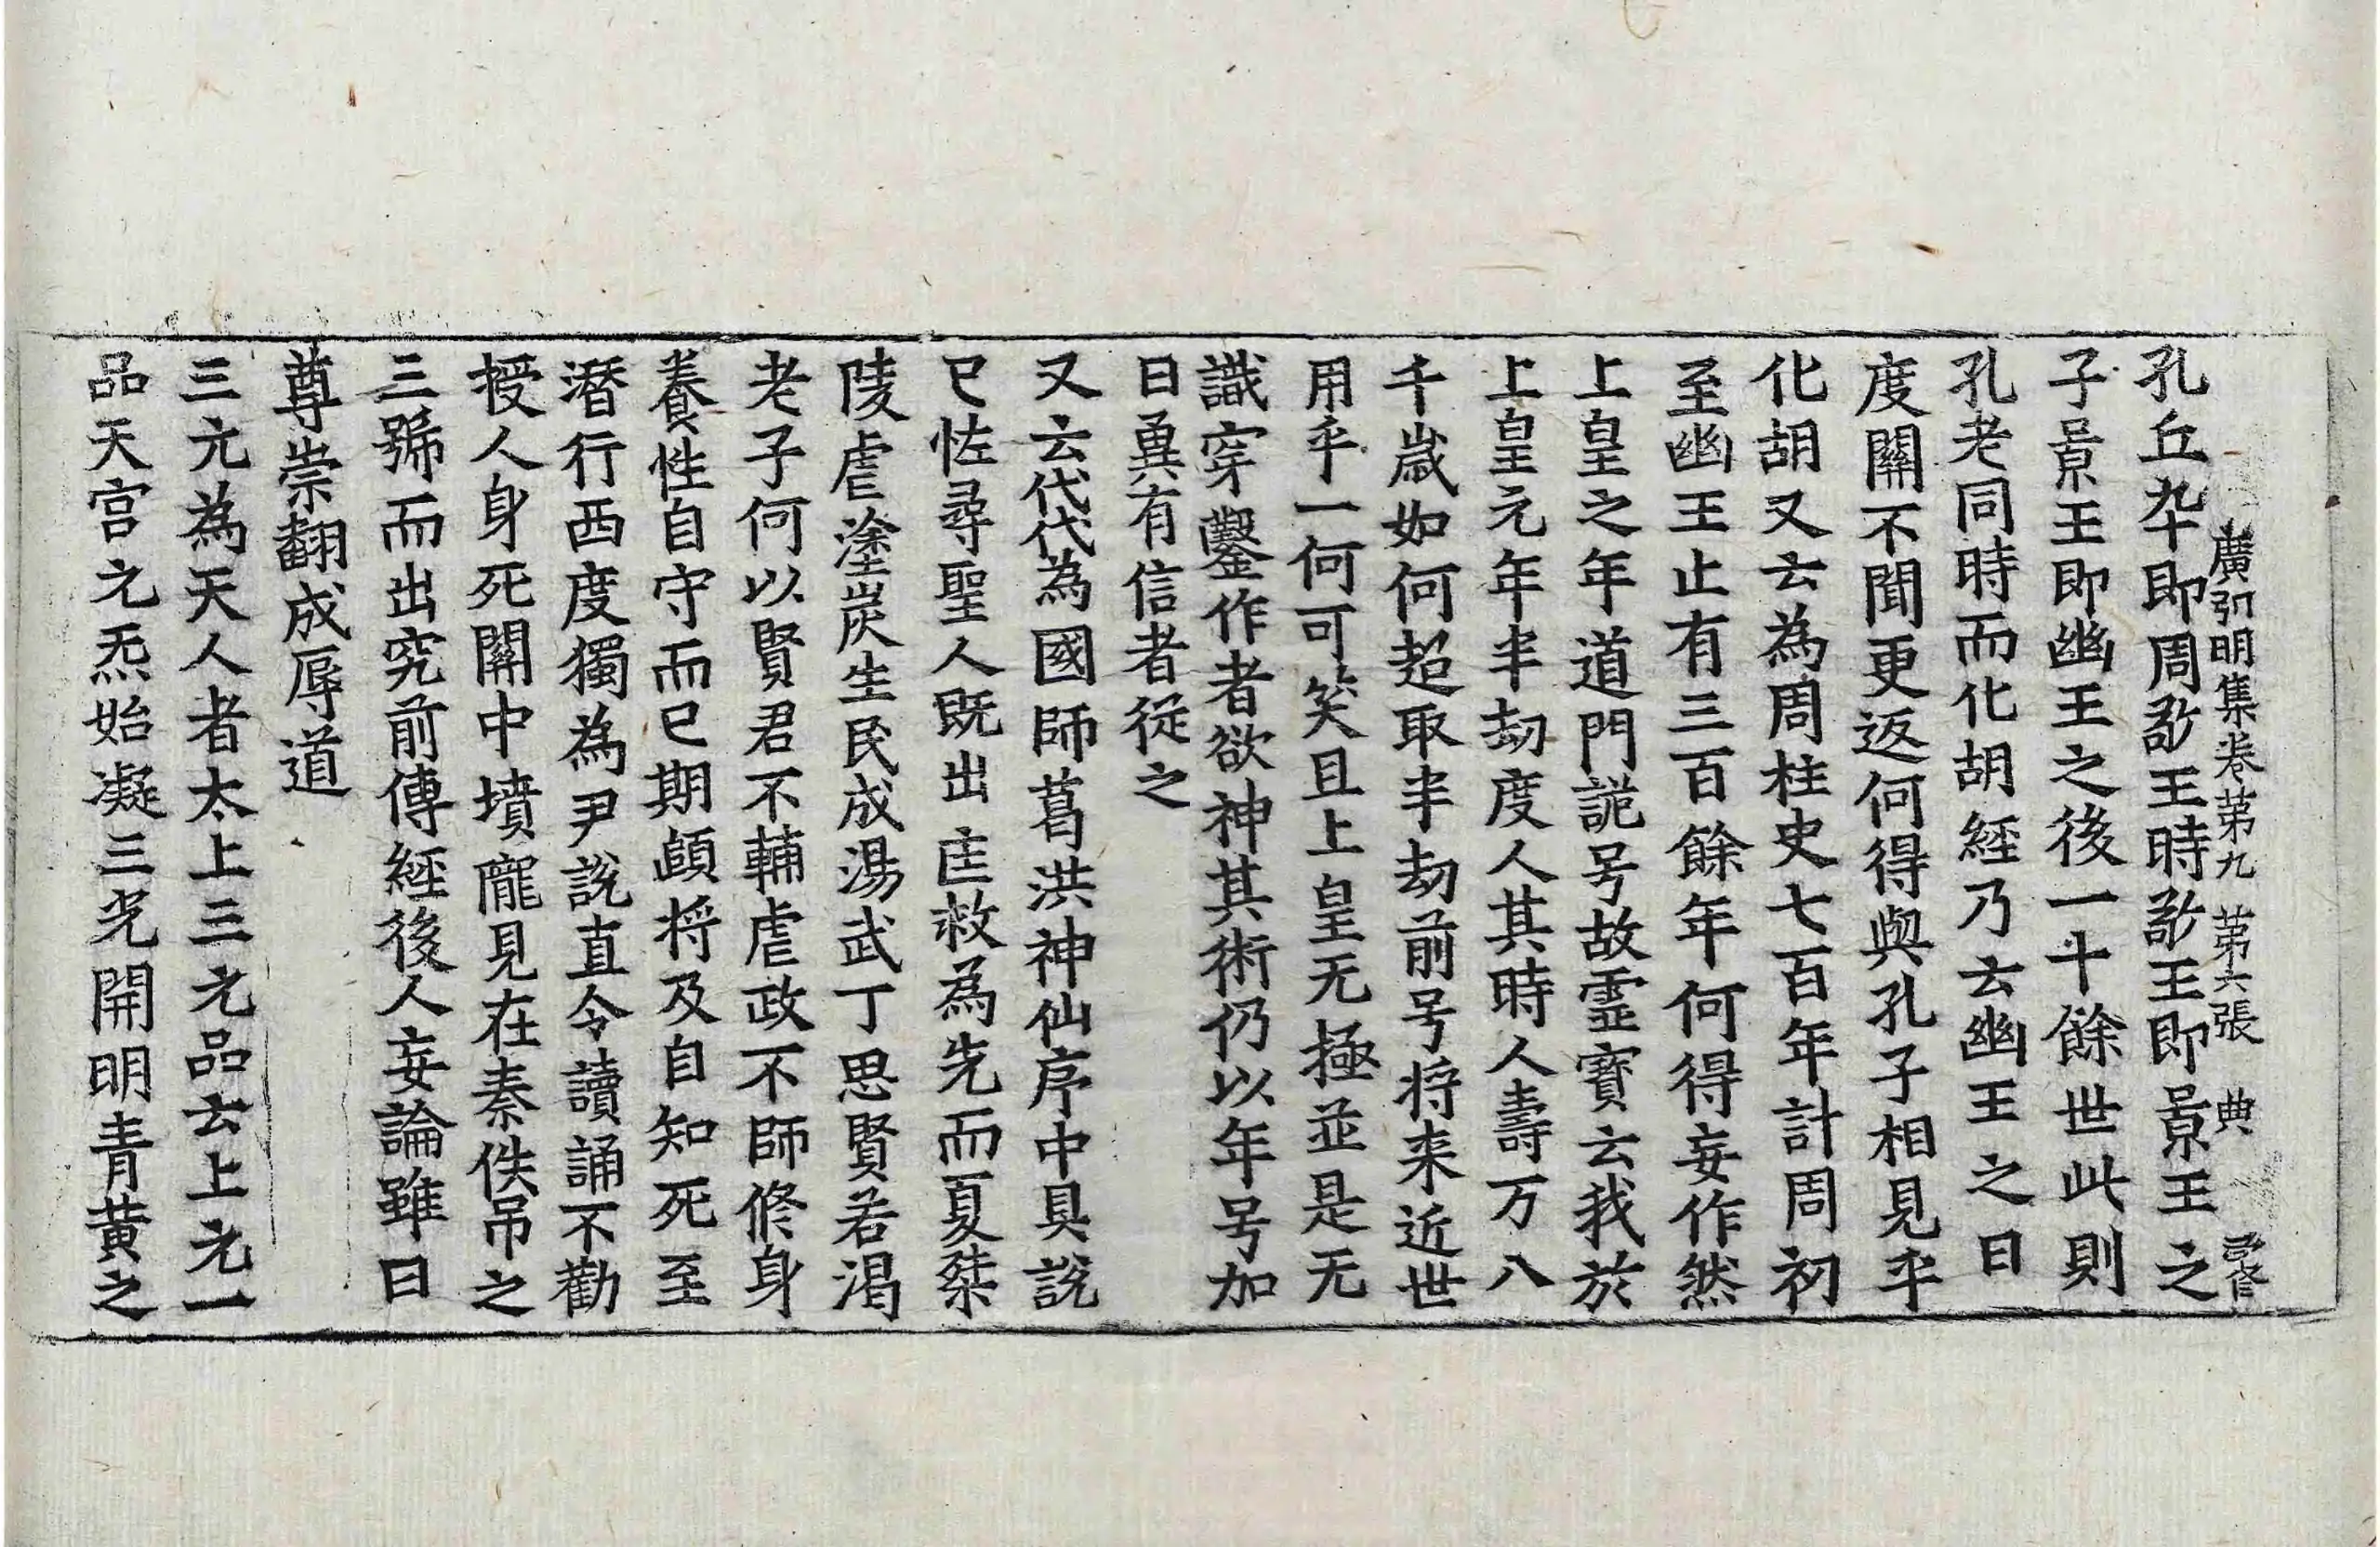 廣弘明集卷第九 第六張 典
孔丘卒即周敬王時敬王即景王之
子景王即幽王之後一十餘世此則
孔老同時而化胡經乃云幽王之日
度關不聞更返何得與孔子相見乎
化胡又云為周柱史七百年計周初
至幽王止有三百餘年何得妄作然
上皇之年道門詭号故靈寶云我於
上皇元年半劫度人其時人壽万八
千歲如何超取半劫前号将来近世
用乎一何可笑且上皇无極並是无
識穿鑿作者欲神其術仍以年号加
日冀有信者從之
又云代代為國師葛洪神仙序中具說
已恠尋聖人既出匡救為先而夏桀
陵虐塗炭生民成湯武丁思賢若渴
老子何以賢君不輔虐政不師修身
養性自守而已期頤将及自知死至
潛行西度獨為尹說直令讀誦不勸
授人身死關中墳隴見在秦佚吊之
三號而出究前傳經後人妄論雖曰
尊崇翻成辱道
三元為天人者太上三元品云上元一
品天宮元炁始凝三光開明青黃之